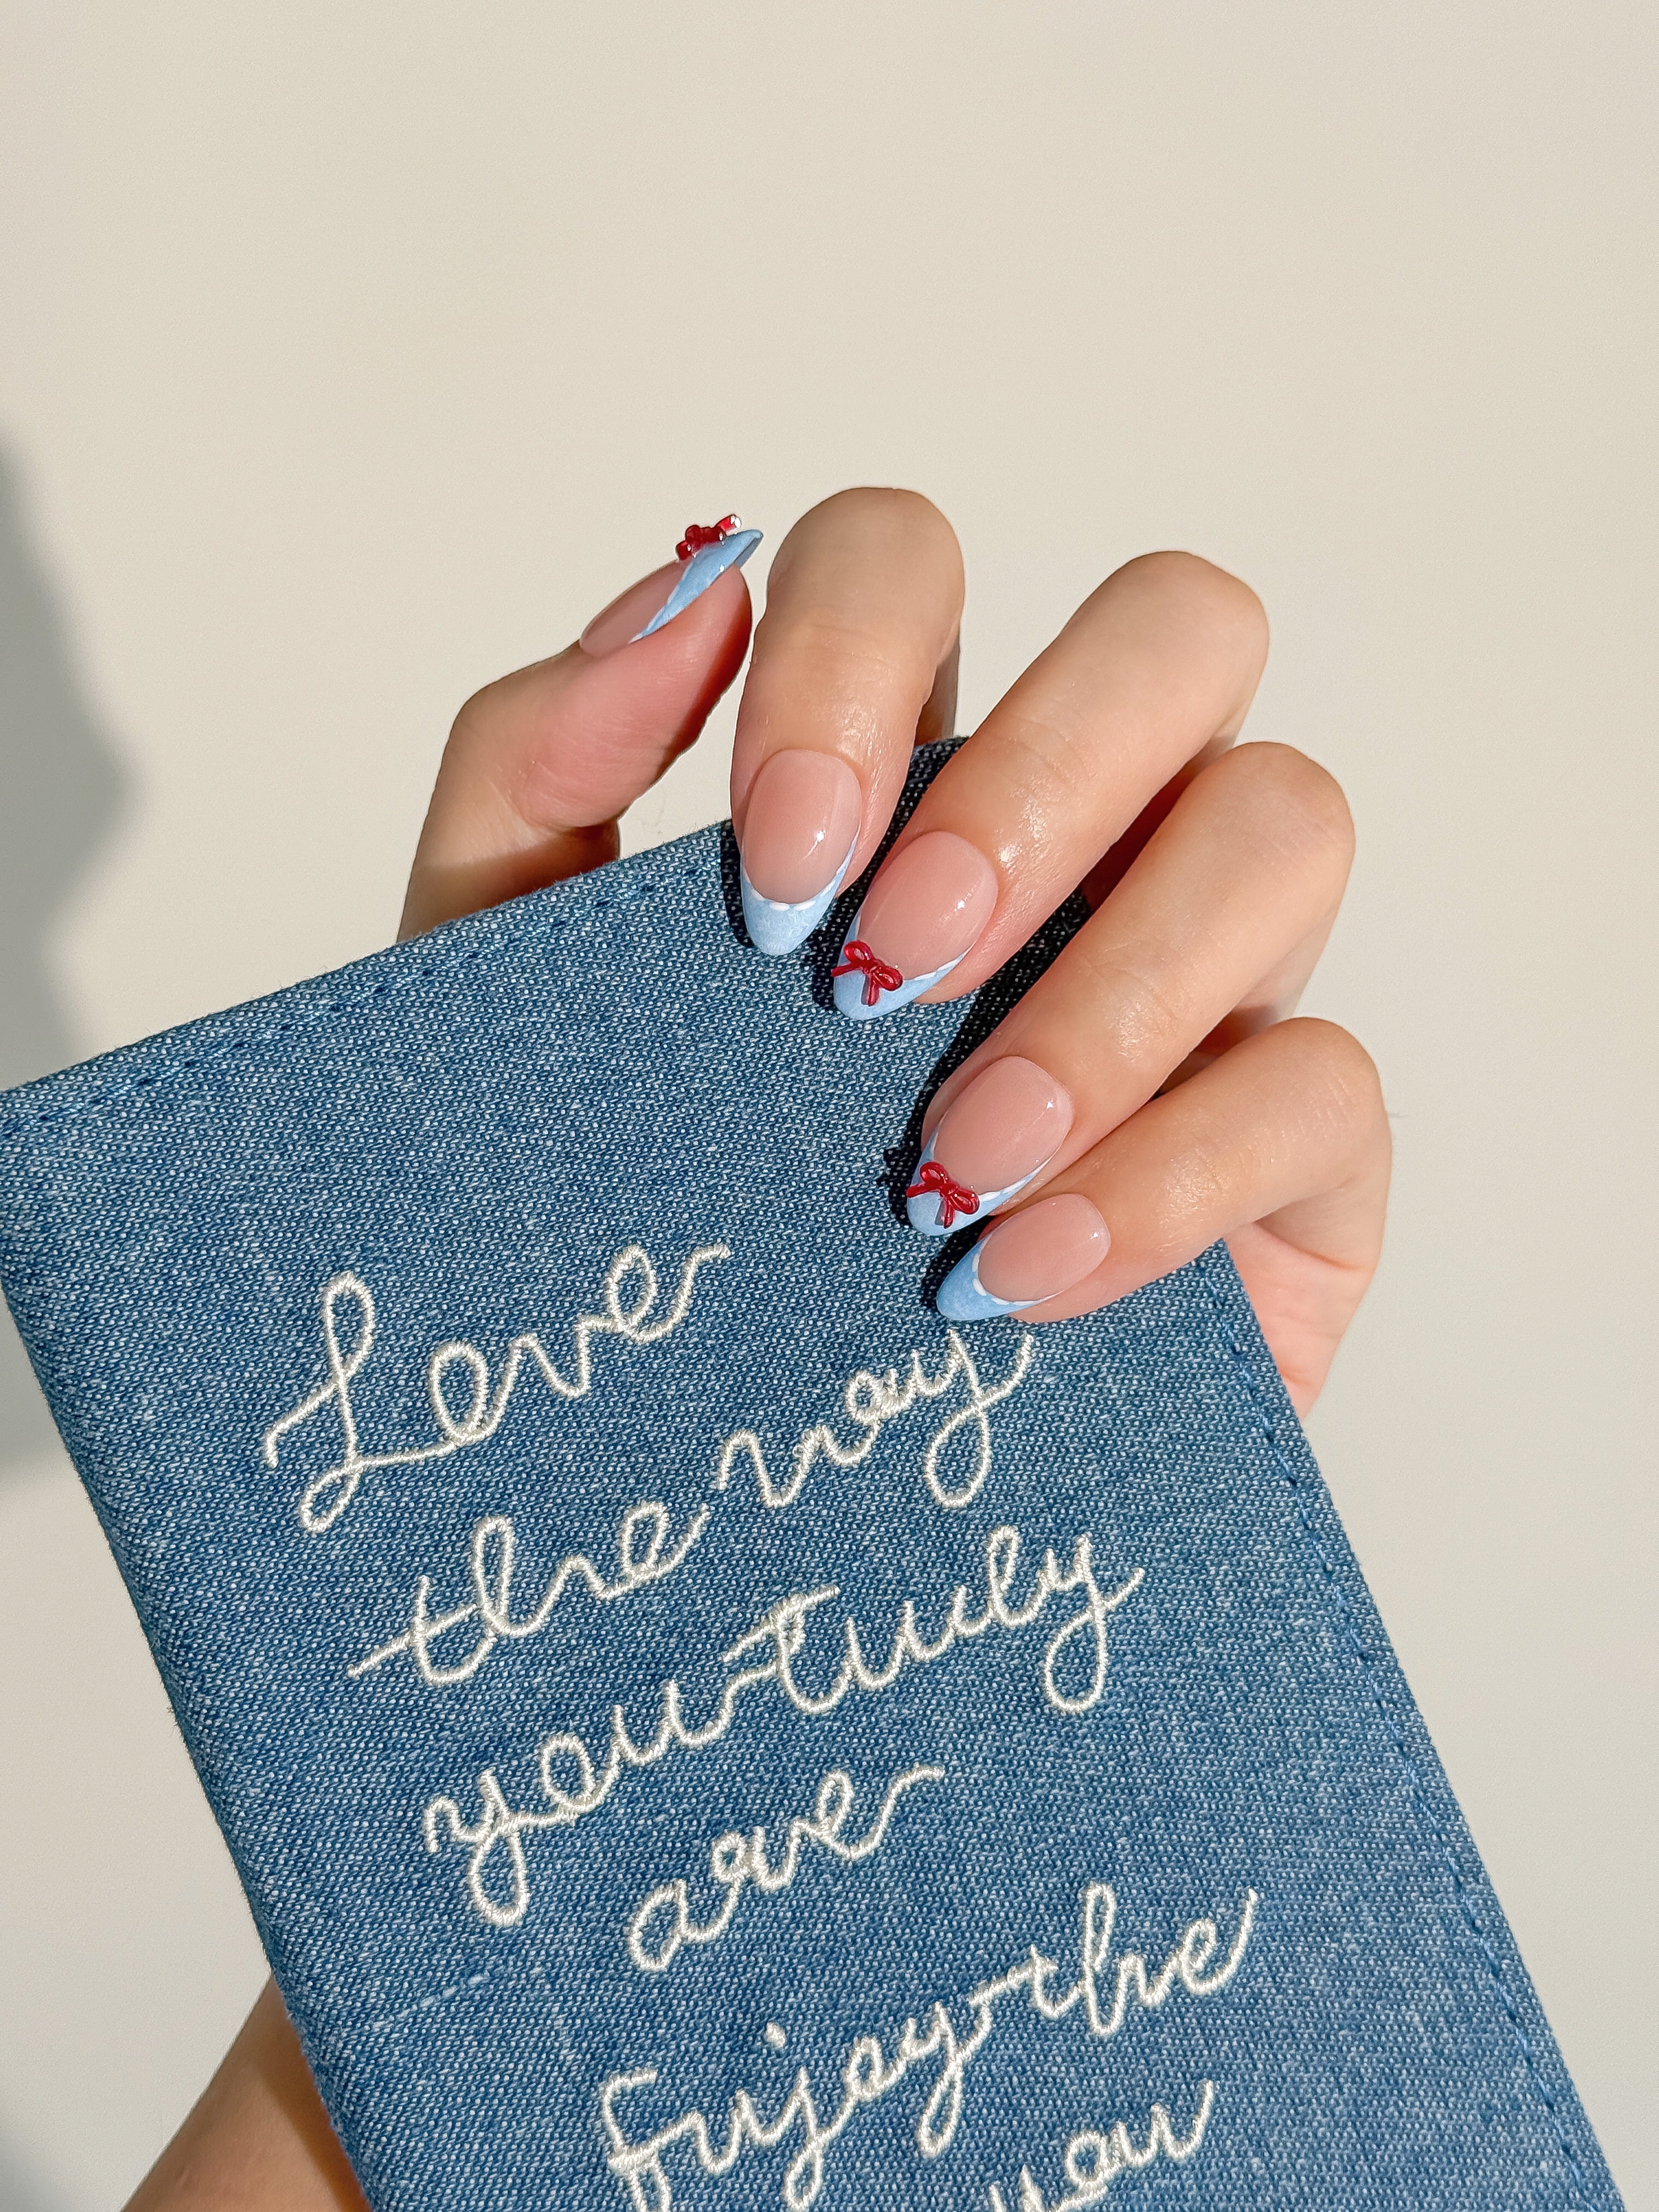 Love
the way
you truly
are
Enjoy the